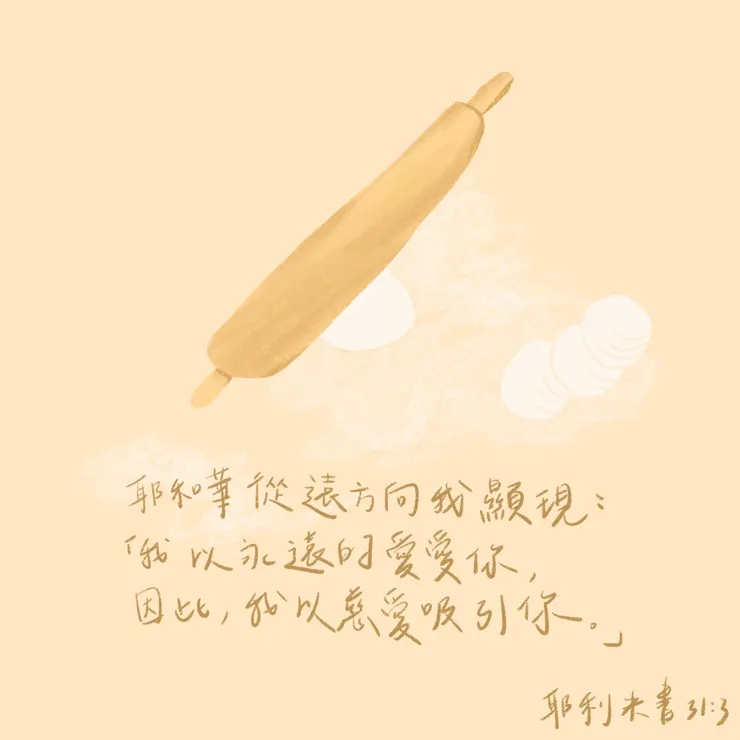 耶和華從遠方向我顯現：
「我以永遠的愛愛你，
因此，我以慈愛吸引你。」
耶利米書 31:3